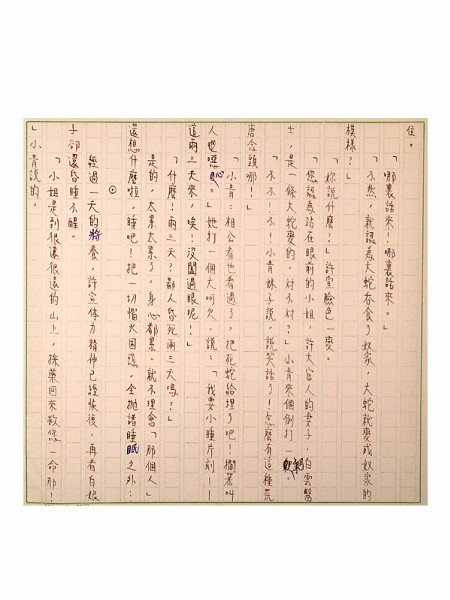 住。
「哪裏話來!哪裏話來。」
「不然,就認為大蛇吞食了奴家,大蛇就變成奴家的
模樣?」
「你說什麼?」許宣臉色一變。
「您認為站在眼前的小姐,許大官人的妻子,白雲醫
士,是一條大蛇變的,對不對?」小青來個倒打一耙。
「不!不!不!小青妹子說,說笑話了!怎麼有這種荒
唐念頭哪!」
「小青:相公看也看過了,把死蛇給埋了吧!擱著叫
人也噁心。」她打一個大呵欠,說:「我要小睡片刻——
這兩三天來,唉!沒闔過眼呢!」
「什麼?兩三天?鄙人昏死兩三天嗎?」
是的,太累太累了,身心都累。就不理會「那個人」
還想什麼啦,睡吧!把一切惱火困惑,全拋諸睡眠之外:
⊙
經過一天的將養,許宣体力精神已經恢復,再看白娘
子卻還昏睡不醒。
「小姐是到很遠很遠的山上,採藥回來救您一命耶!
」小青說的。